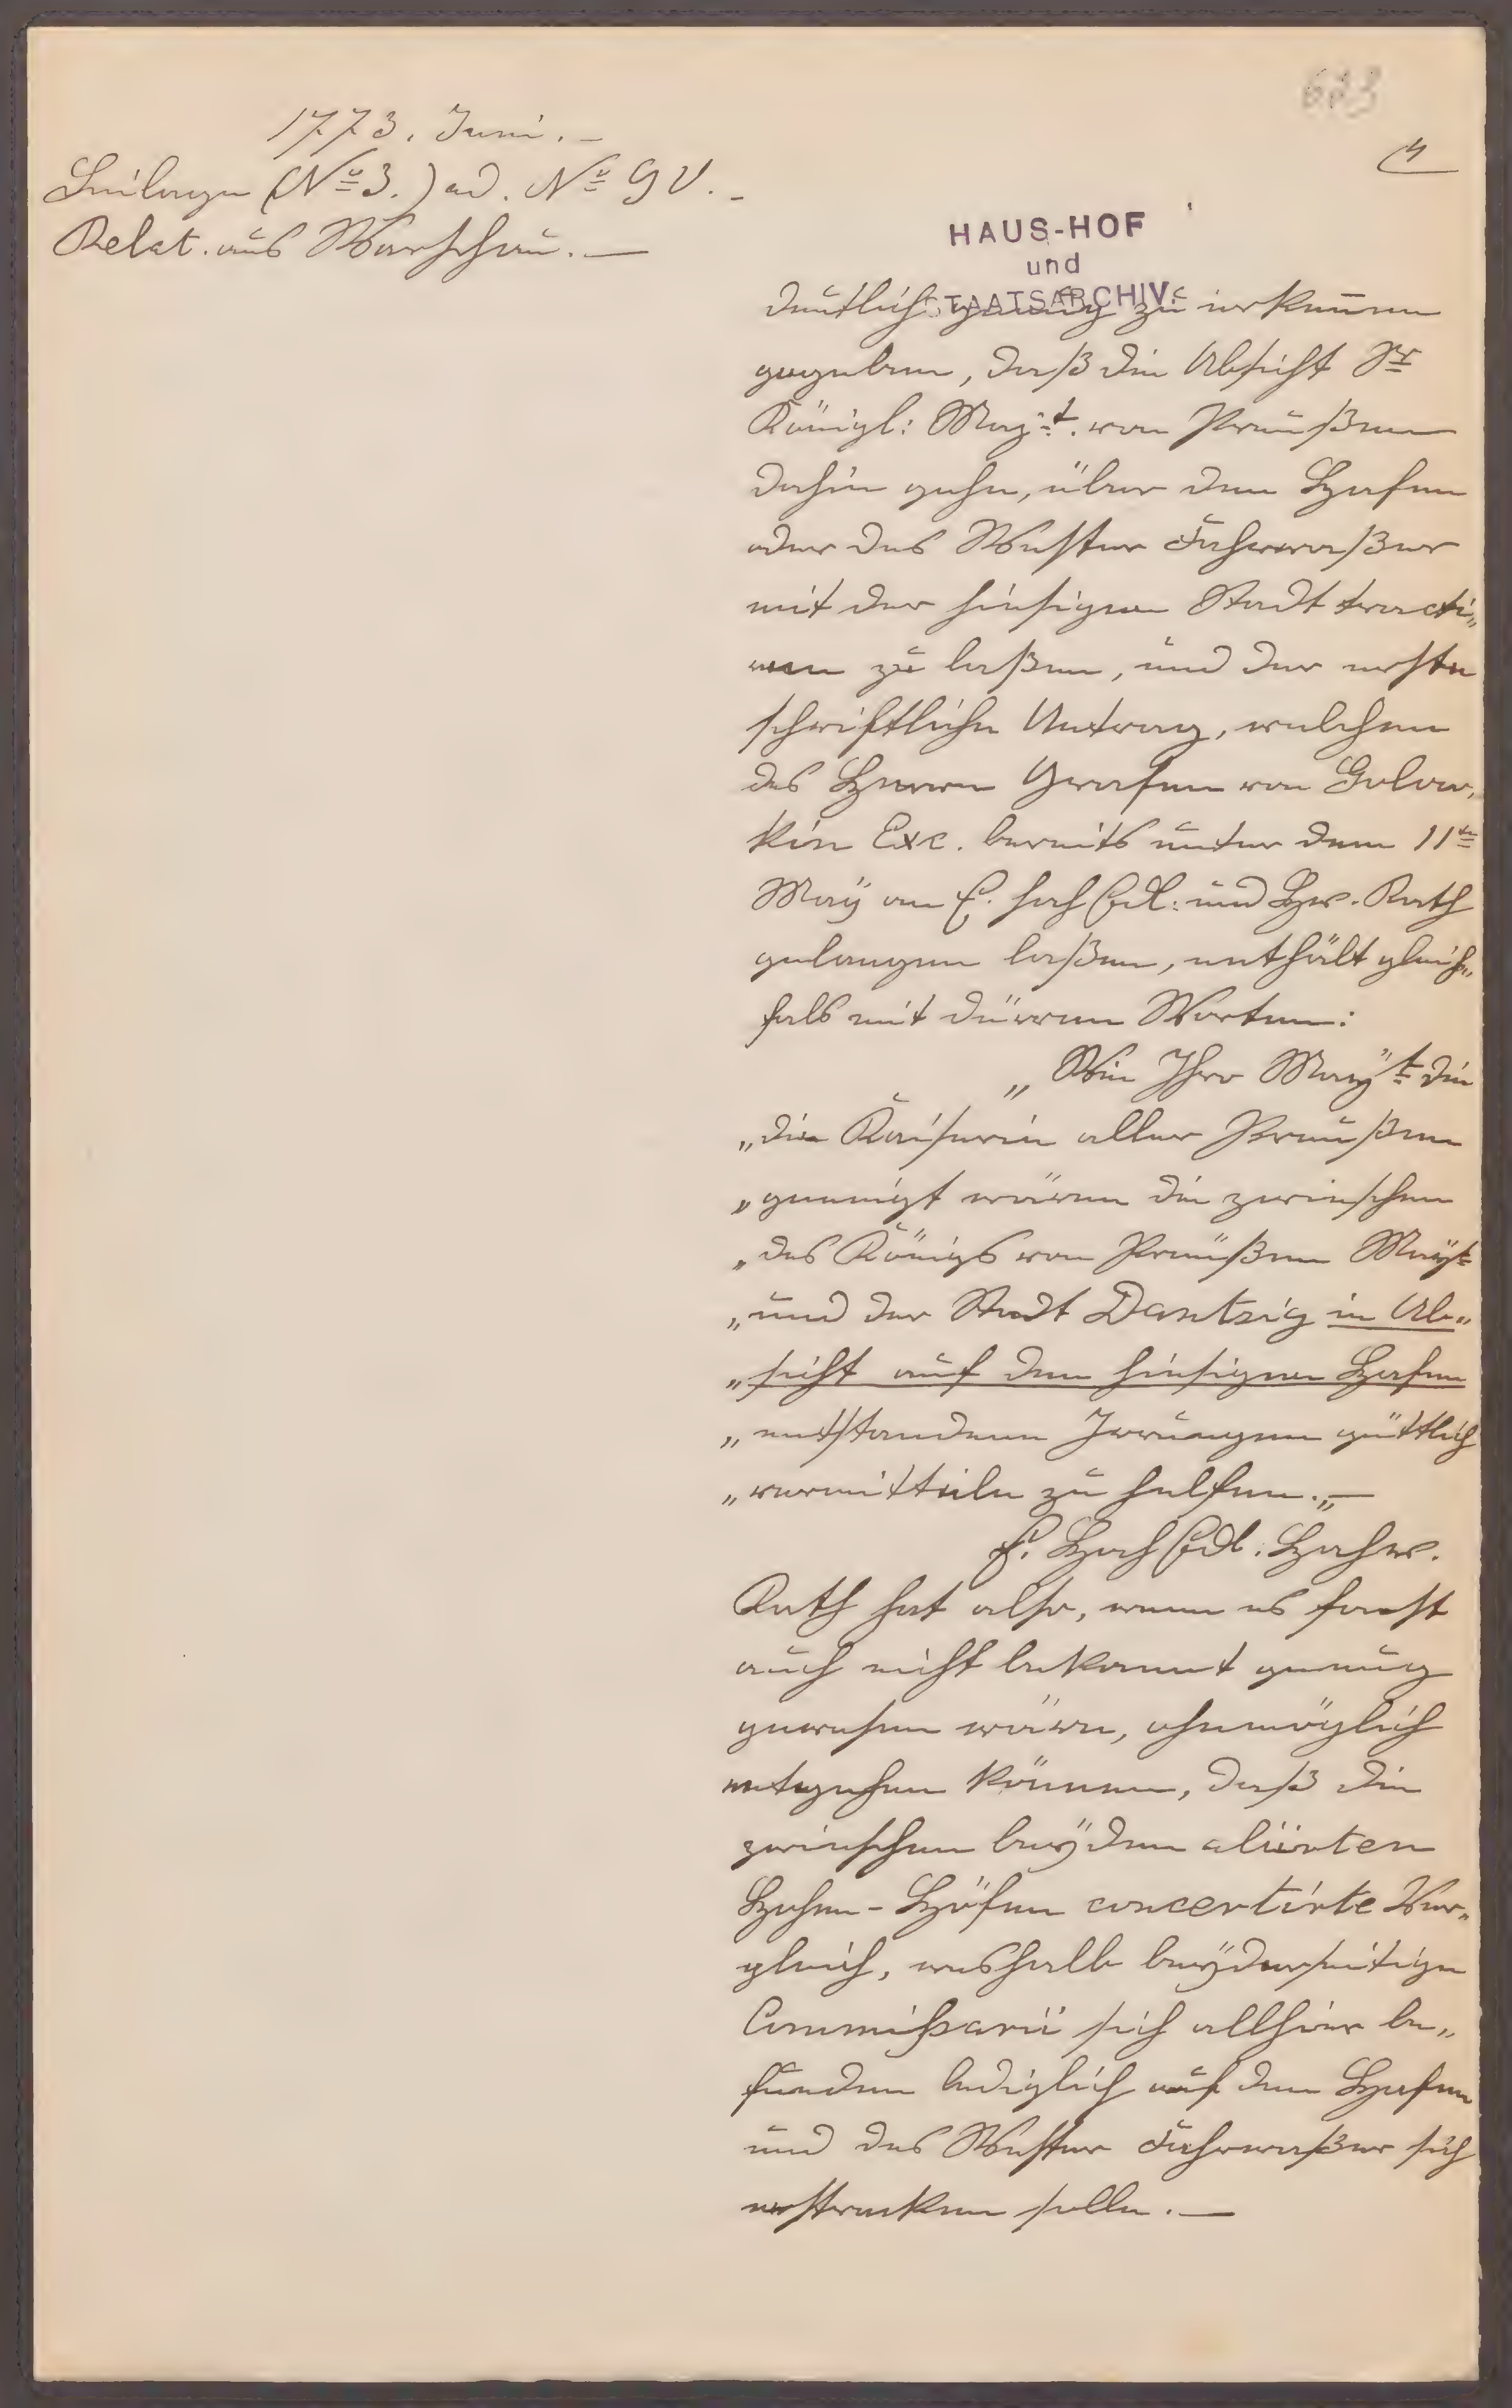 683
1773. Juni. –
Beilagen (No 3.) ad. No 9 V. –
Relat. aus Warschau. –
HAUS-HOF
und
STAATSARCHIV
deutlich genug zu erkennen
gegeben, daß die Absicht Sr
Königl: Mayt. von Preußen
dahin gehe, über den Hafen
oder das Wester Fahrwaßer
mit der hiesigen Stadt tracti„
ren zu laßen, und der erste
schriftliche Antrag, welchen
des Herrn Grafen von Golow„
kin Exc. bereits unter dem 11ten
May an E. HochEdl: und Hw. Rath
gelangen laßen, enthält gleich„
fals mit dürren Worten:
„Wie Ihro Mayt die
„die Kaiserin aller Preußen
„geneigt wären die zwischen
„des Königs von Preußen Mayt
„und der Stadt Dantzig in Ab„
„sicht auf den hiesigen Hafen
„entstandene Irrungen güttlich
„vermitteln zu helfen.„ –
E. HochEdl. Hochw.
Rath hat also, wenn es sonst
auch nicht bekannt genug
gewesen wäre, ohnmöglich
entgehen können, daß die
zwischen beyden aliirten
Hohen-Höfen concertirte Ver„
gleich, weshalb beyderseitige
Commißarii sich allhier be„
funden lediglich auf den Hafen
und das Wester Fahrwaßer sich
erstrecken solle. –